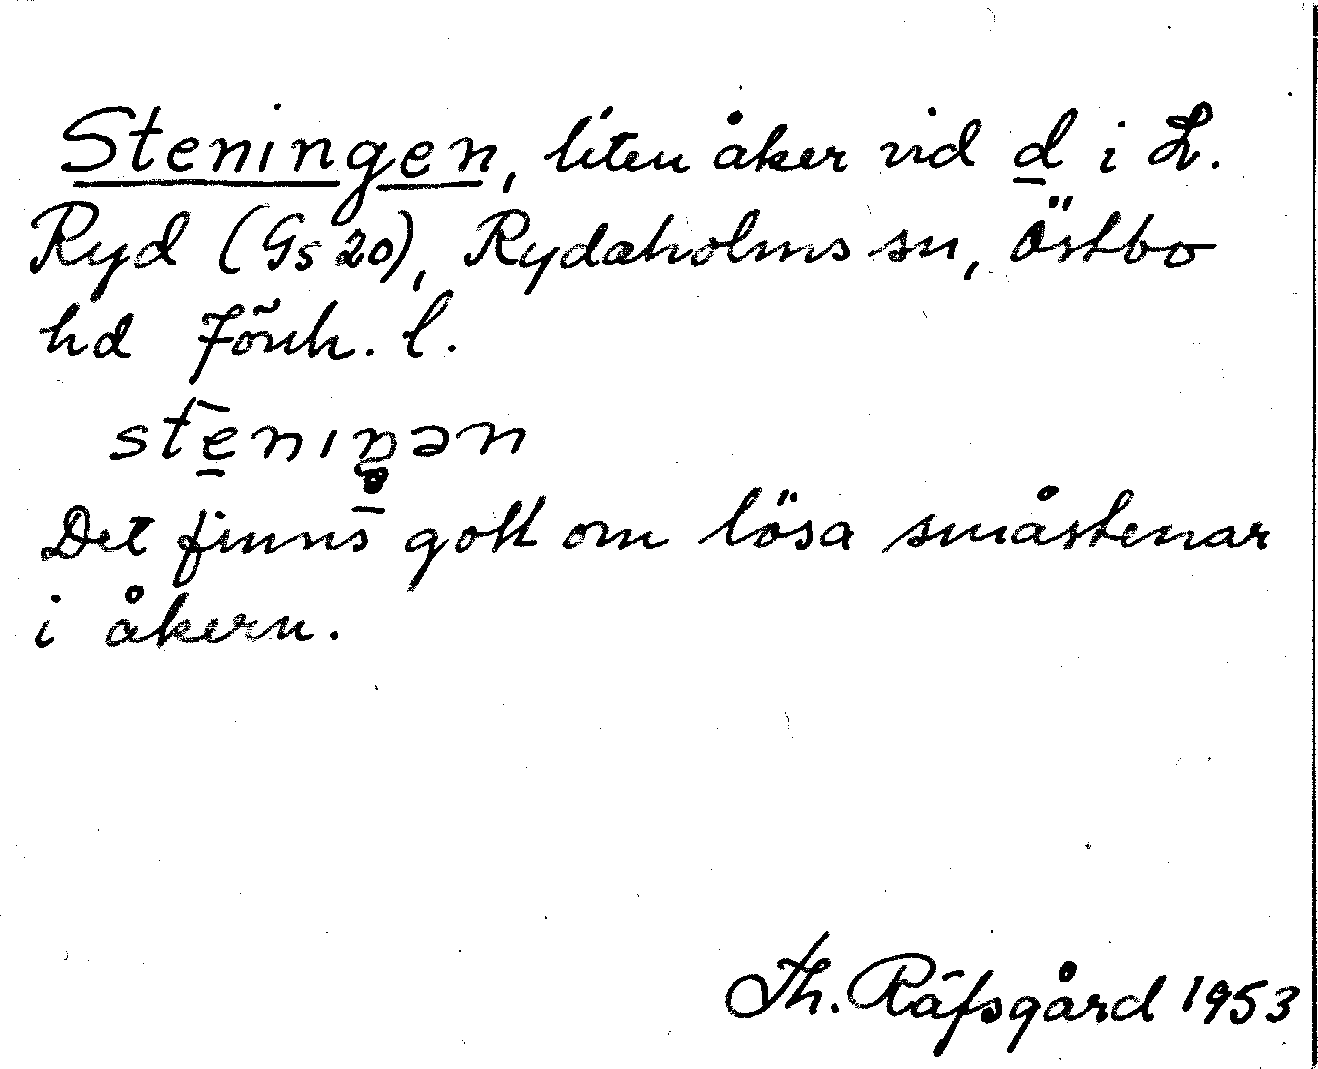 Steningen, liten åker vid d i L.
Ryd (Gs 20), Rydaholms sn, Östbo
hd Jönk. l.
stenıŋən
Det finns gott om lösa småstenar
i åkern.
Th. Räfsgård 1953